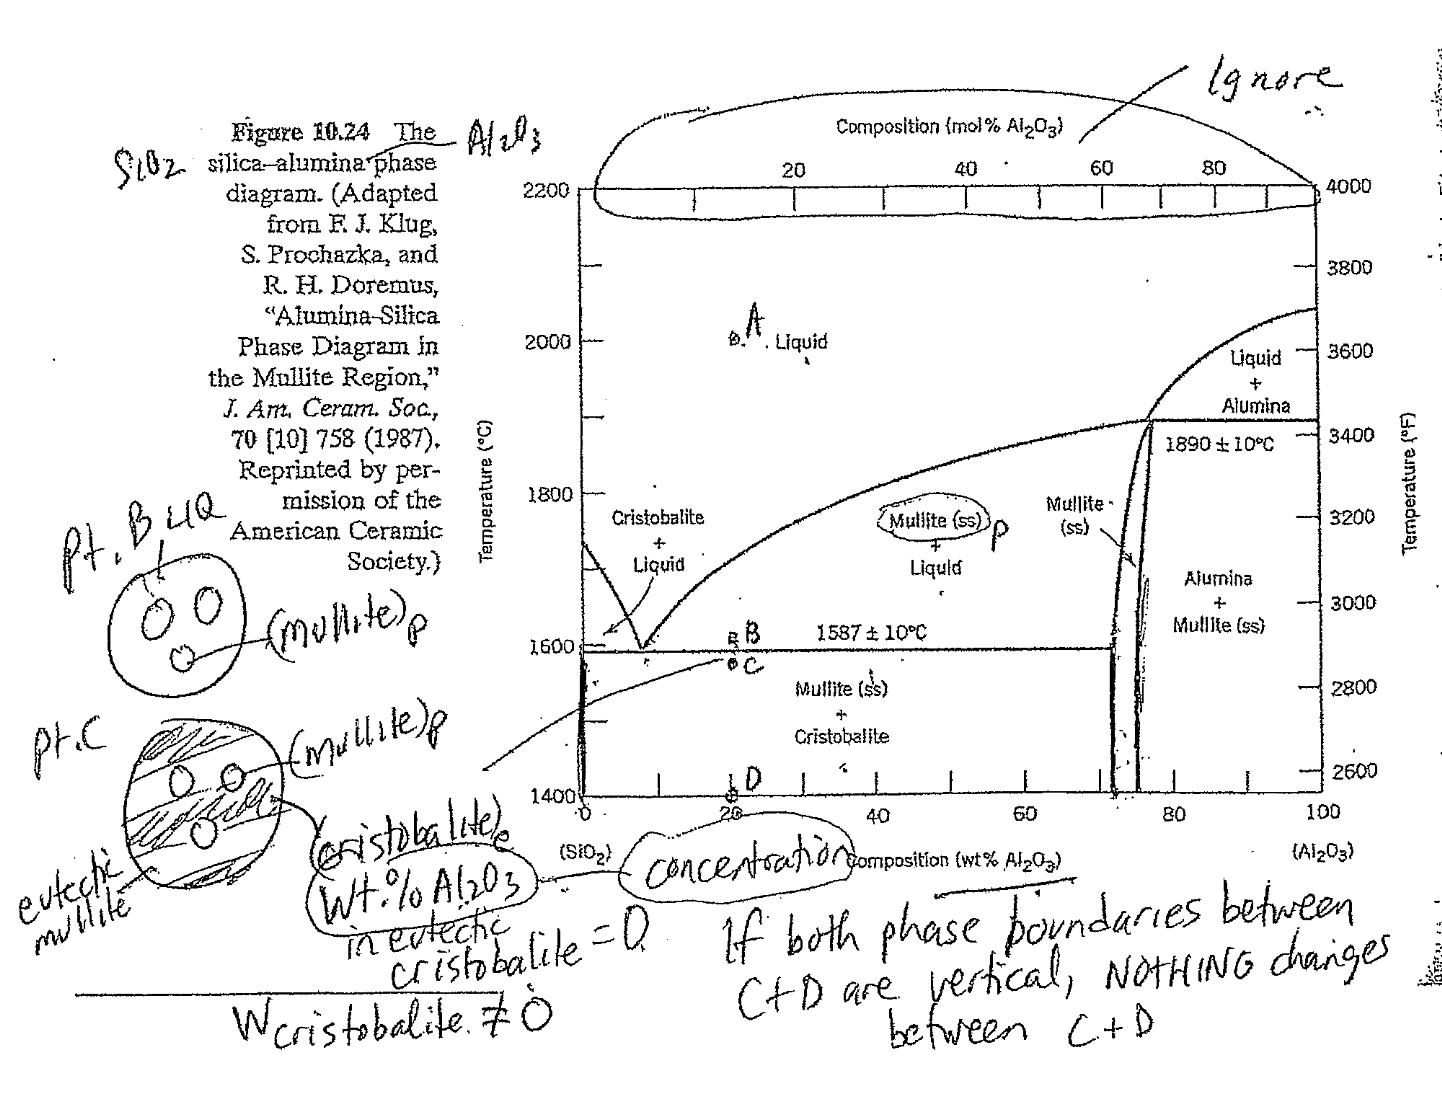 Ignore
Figure 10.24 The
silica–alumina phase
diagram. (Adapted
from F. J. Klug,
S. Prochazka, and
R. H. Doremus,
“Alumina-Silica
Phase Diagram in
the Mullite Region,”
J. Am. Ceram. Soc.,
70 [10] 758 (1987).
Reprinted by per-
mission of the
American Ceramic
Society.)
SiO2
Al2O3
Composition (mol% Al2O3)
20 40 60 80
2200
2000
1800
1600
1400
Temperature (°C)
4000
3800
3600
3400
3200
3000
2800
2600
Temperature (°F)
A
Liquid
Liquid
+
Alumina
1890 ± 10°C
Cristobalite
+
Liquid
Mullite (ss) p
+
Liquid
Mullite
(ss)
Alumina
+
Mullite (ss)
B
1587 ± 10°C
C
Mullite (ss)
+
Cristobalite
D
0 20 40 60 80 100
(SiO2)
Composition (wt% Al2O3)
(Al2O3)
Pt. B LIQ
(mullite)p
pt. C
(mullite)p
eutectic
mullite
(cristobalite)e
Wt.% Al2O3
concentration
in eutectic
cristobalite = 0
Wcristobalite ≠ 0
If both phase boundaries between
C+D are vertical, NOTHING changes
between C+D